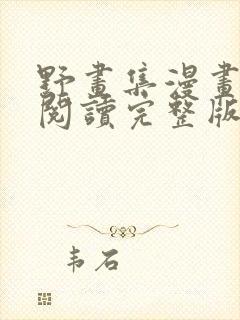 野畫集漫畫
閱讀完整版
韦石